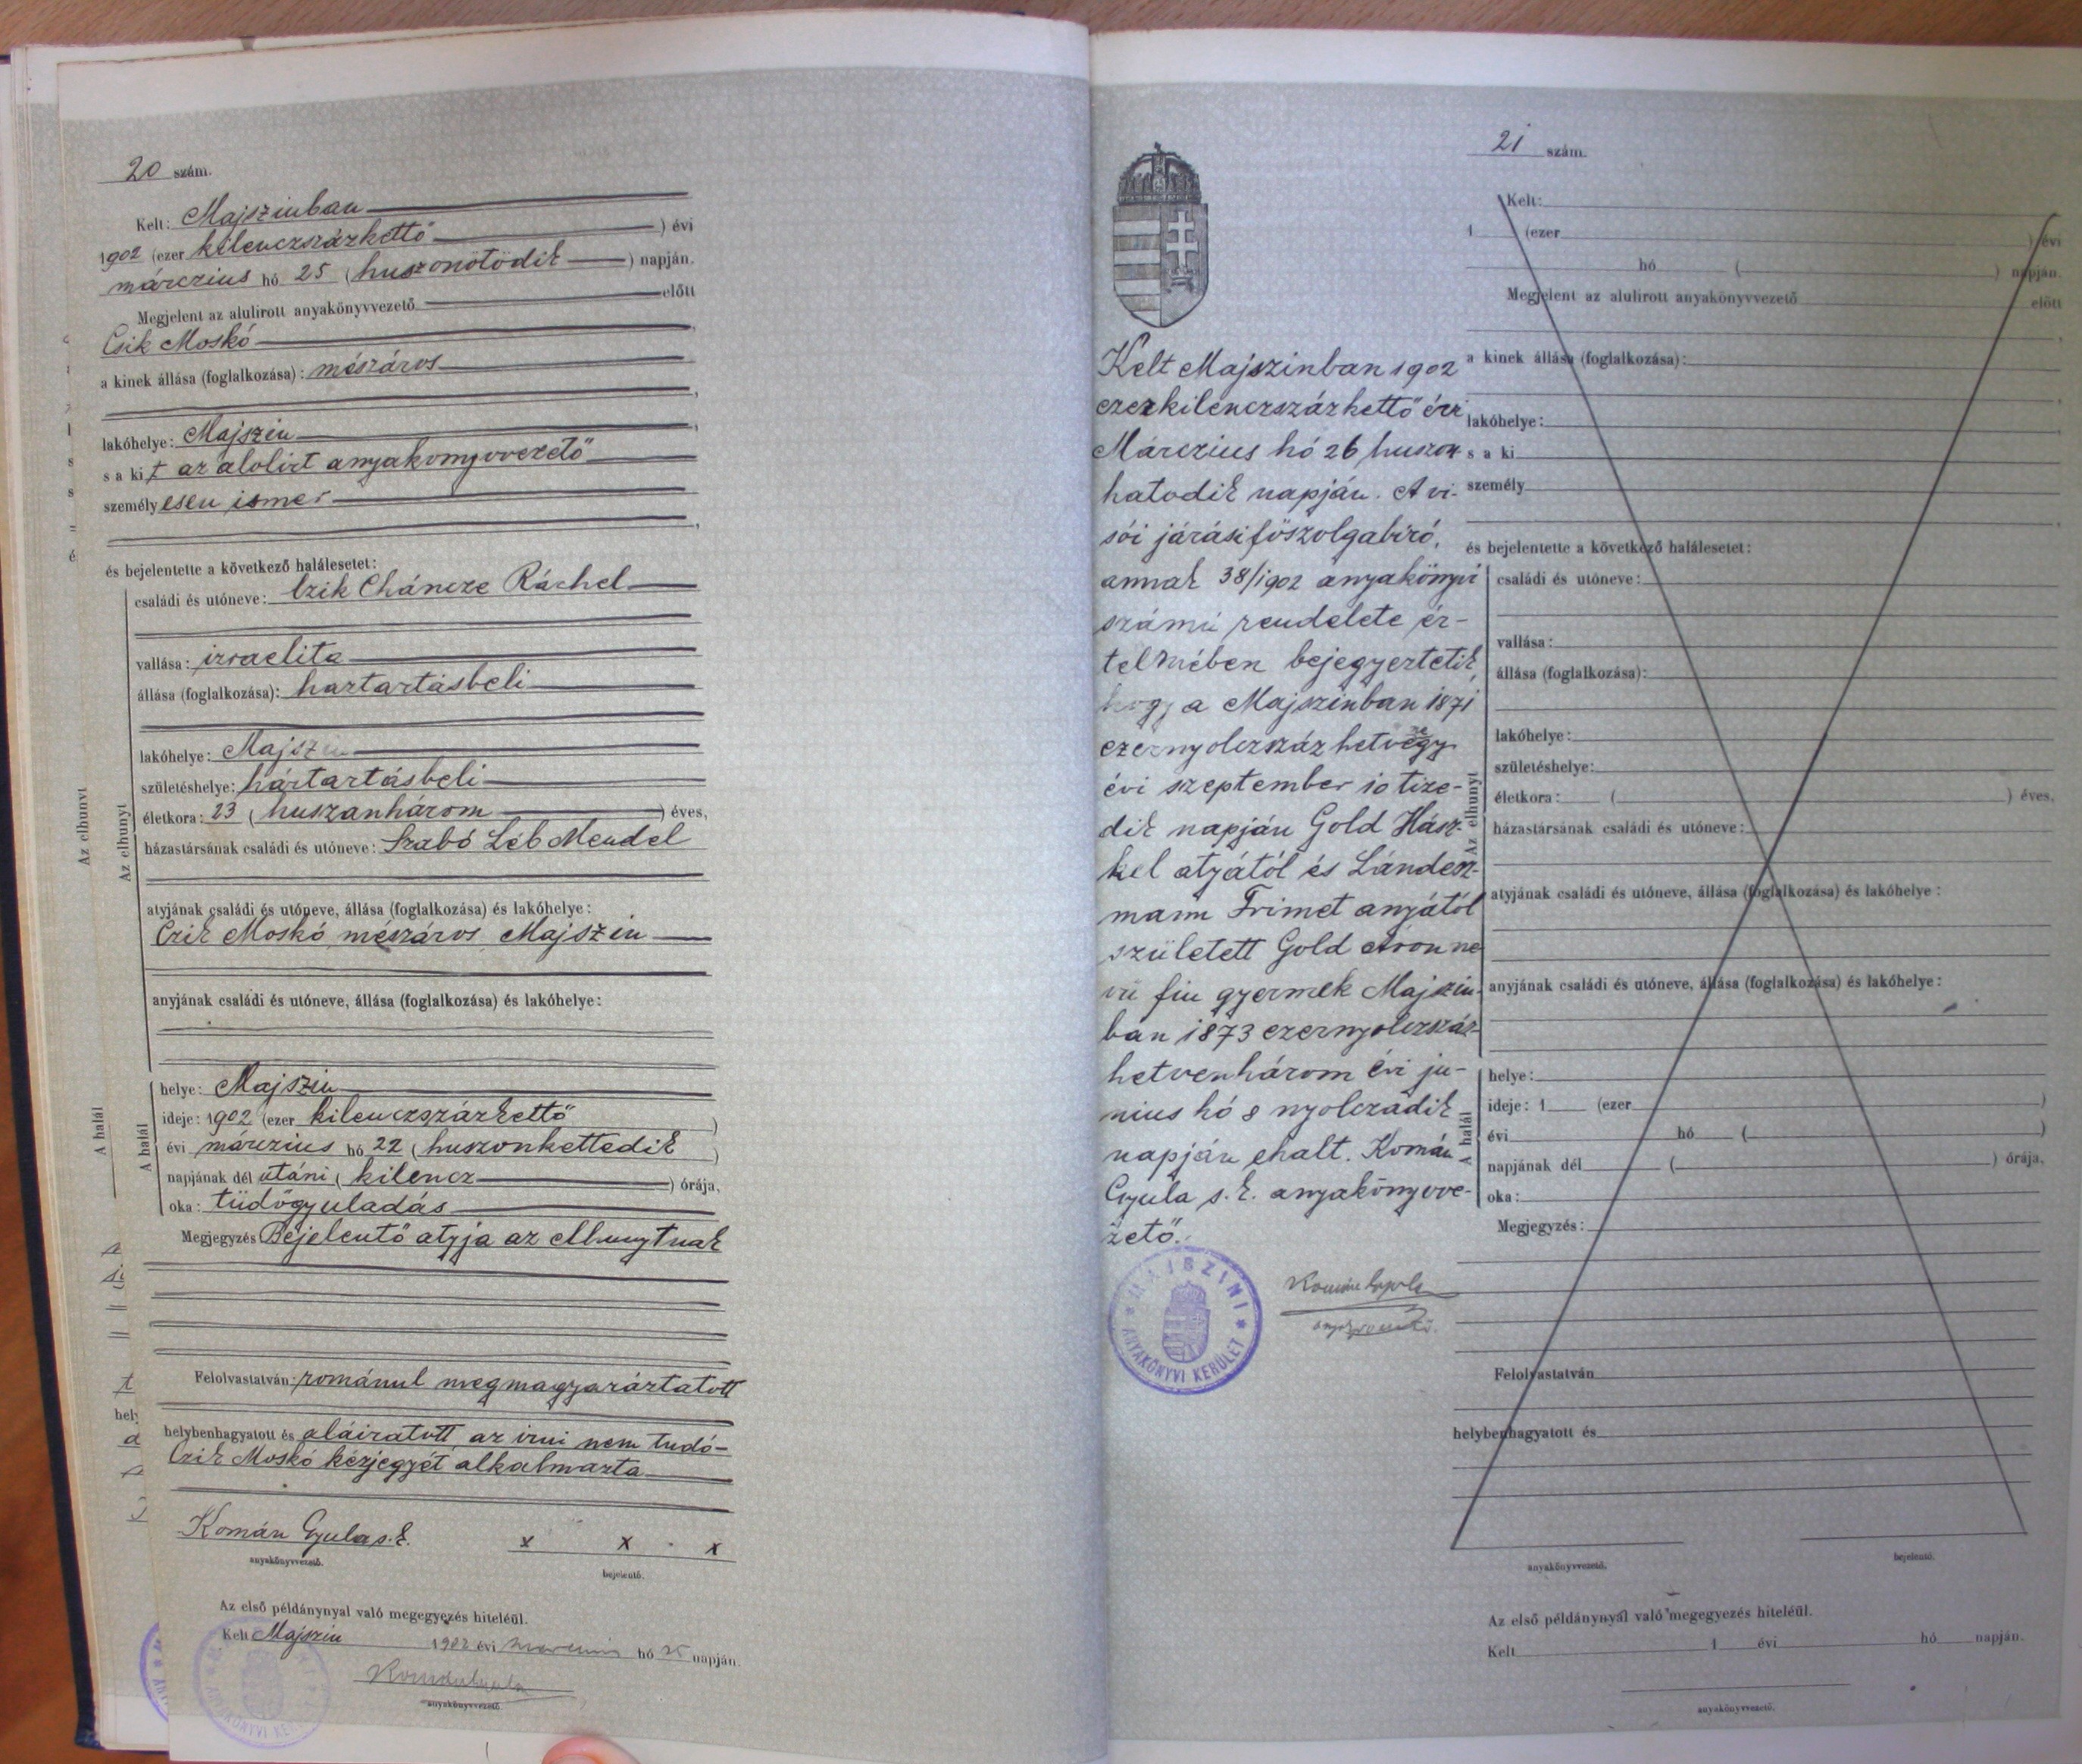 20 szám.
Kelt: Majszinban
1902 (ezer kilenczszázhettő ) évi
márczius hó 25 (huszonötödik ) napján.
Megjelent az alulirott anyakönyvvezető előtt
Csik Moskó
a kinek állása (foglalkozása): mészáros
lakóhelye: Majszin
s a kit az alolirt anyakonyvvezető
személyesen ismer
és bejelentette a következő halálesetet:
Az elhunyt
családi és utóneve: Czik Cháncze Ráchel
vallása: izraelita
állása (foglalkozása): haztartásbeli
lakóhelye: Majszin
születéshelye: háztartásbeli
életkora: 23 (huszanhárom ) éves,
házastársának családi és utóneve: Szabó Léb Mendel
atyjának családi és utóneve, állása (foglalkozása) és lakóhelye:
Czik Moskó mészáros Majszin
anyjának családi és utóneve, állása (foglalkozása) és lakóhelye:
A halál
helye: Majszin
ideje: 1902 (ezer kilenczszázkettő )
évi márczius hó 22 (huszonkettedik )
napjának dél utáni (kilencz ) órája,
oka: tüdőgyuladás
Megjegyzés Bejelentő atyja az elhunytnak
Felolvastatván románul megmagyaráztatott
helybenhagyatott és aláiratott az irni nem tudó-
Czik Moskó kézjegyét alkalmazta
Komán Gyula s. k. x x x
anyakönyvvezető. bejelentő.
Az első példánynyal való megegyezés hiteléül.
Kelt Majszin 1902 évi hó 25 napján.
anyakönyvvezető.
21 szám.
Kelt:
1 (ezer ) évi
hó ( ) napján.
Megjelent az alulirott anyakönyvvezető előtt
a kinek állása (foglalkozása):
lakóhelye:
s a ki
személy
és bejelentette a következő halálesetet:
Az elhunyt
családi és utóneve:
vallása:
állása (foglalkozása):
lakóhelye:
születéshelye:
életkora: ( ) éves,
házastársának családi és utóneve:
atyjának családi és utóneve, állása (foglalkozása) és lakóhelye:
anyjának családi és utóneve, állása (foglalkozása) és lakóhelye:
A halál
helye:
ideje: 1 (ezer )
évi hó ( )
napjának dél ( ) órája,
oka:
Megjegyzés:
Felolvastatván
helybenhagyatott és
anyakönyvvezető. bejelentő.
Az első példánynyal való megegyezés hiteléül.
Kelt 1 évi hó napján.
anyakönyvvezető.
Kelt Majszinban 1902
ezerkilenczszázhettő évi
Márczius hó 26 huszon
hatodik napján. A vi-
sói járási főszolgabiró,
annak 38/1902 anyakönyvi
számú rendelete ér-
telmében bejegyeztetik,
hogy a Majszinban 1871
ezernyolczszáz hetvenegy
évi szeptember 10 tize-
dik napján Gold Hász-
kel atyától és Lándesz-
mann Frimet anyától
született Gold Áron ne
vü fiu gyermek Majszin-
ban 1873 ezernyolczszáz
hetvenhárom évi ju-
nius hó 8 nyolczadik
napján ehalt. Komán
Gyula s. k. anyakönyvve-
zető.
MAJSZINI
ANYAKÖNYVI KERÜLET
Komán Gyula